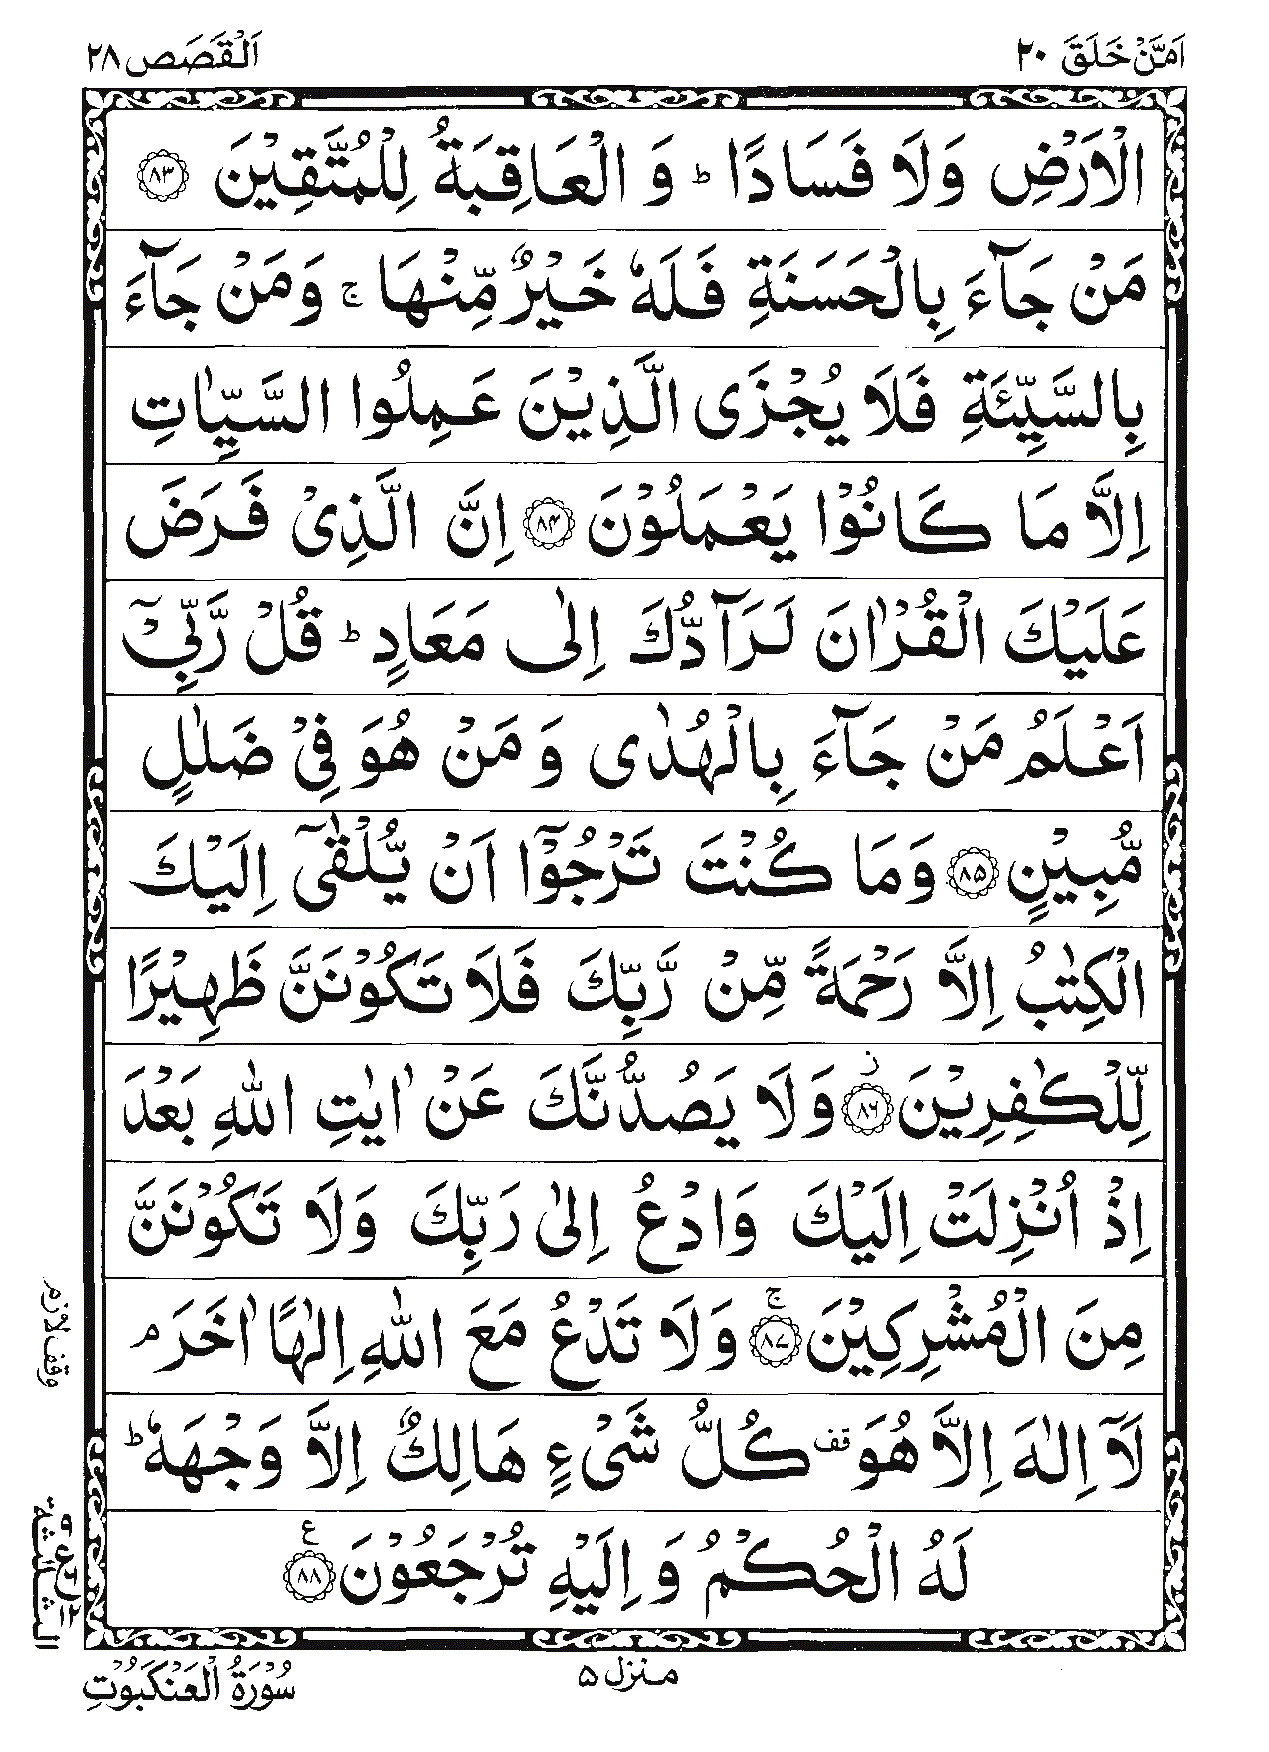 اَمَّنْ خَلَقَ ٢٠
اَلْقَصَص ٢٨
الْاَرْضِ وَلَا فَسَادًا ؕ وَ الْعَاقِبَةُ لِلْمُتَّقِيْنَ ﴿٨٣﴾
مَنْ جَآءَ بِالْحَسَنَةِ فَلَهٗ خَيْرٌ مِّنْهَا ۚ وَمَنْ جَآءَ
بِالسَّيِّئَةِ فَلَا يُجْزَى الَّذِيْنَ عَمِلُوا السَّيِّاٰتِ
اِلَّا مَا كَانُوْا يَعْمَلُوْنَ ﴿٨٤﴾ اِنَّ الَّذِىْ فَرَضَ
عَلَيْكَ الْقُرْاٰنَ لَرَآدُّكَ اِلٰى مَعَادٍ ؕ قُلْ رَّبِّىْۤ
اَعْلَمُ مَنْ جَآءَ بِالْهُدٰى وَ مَنْ هُوَ فِىْ ضَلٰلٍ
مُّبِيْنٍ ﴿٨٥﴾ وَمَا كُنْتَ تَرْجُوْۤا اَنْ يُّلْقٰٓى اِلَيْكَ
الْكِتٰبُ اِلَّا رَحْمَةً مِّنْ رَّبِّكَ فَلَا تَكُوْنَنَّ ظَهِيْرًا
لِّلْكٰفِرِيْنَ ﴿٨٦﴾ ز وَلَا يَصُدُّنَّكَ عَنْ اٰيٰتِ اللّٰهِ بَعْدَ
اِذْ اُنْزِلَتْ اِلَيْكَ وَادْعُ اِلٰى رَبِّكَ وَلَا تَكُوْنَنَّ
مِنَ الْمُشْرِكِيْنَ ﴿٨٧﴾ ۚ وَلَا تَدْعُ مَعَ اللّٰهِ اِلٰهًا اٰخَرَ ۘ
لَاۤ اِلٰهَ اِلَّا هُوَ قف كُلُّ شَىْءٍ هَالِكٌ اِلَّا وَجْهَهٗ ؕ
لَهُ الْحُكْمُ وَ اِلَيْهِ تُرْجَعُوْنَ ﴿٨٨﴾ ع
وقف لازم
الثلثة
منزل ٥
سُوْرَةُ الْعَنْكَبُوْتِ